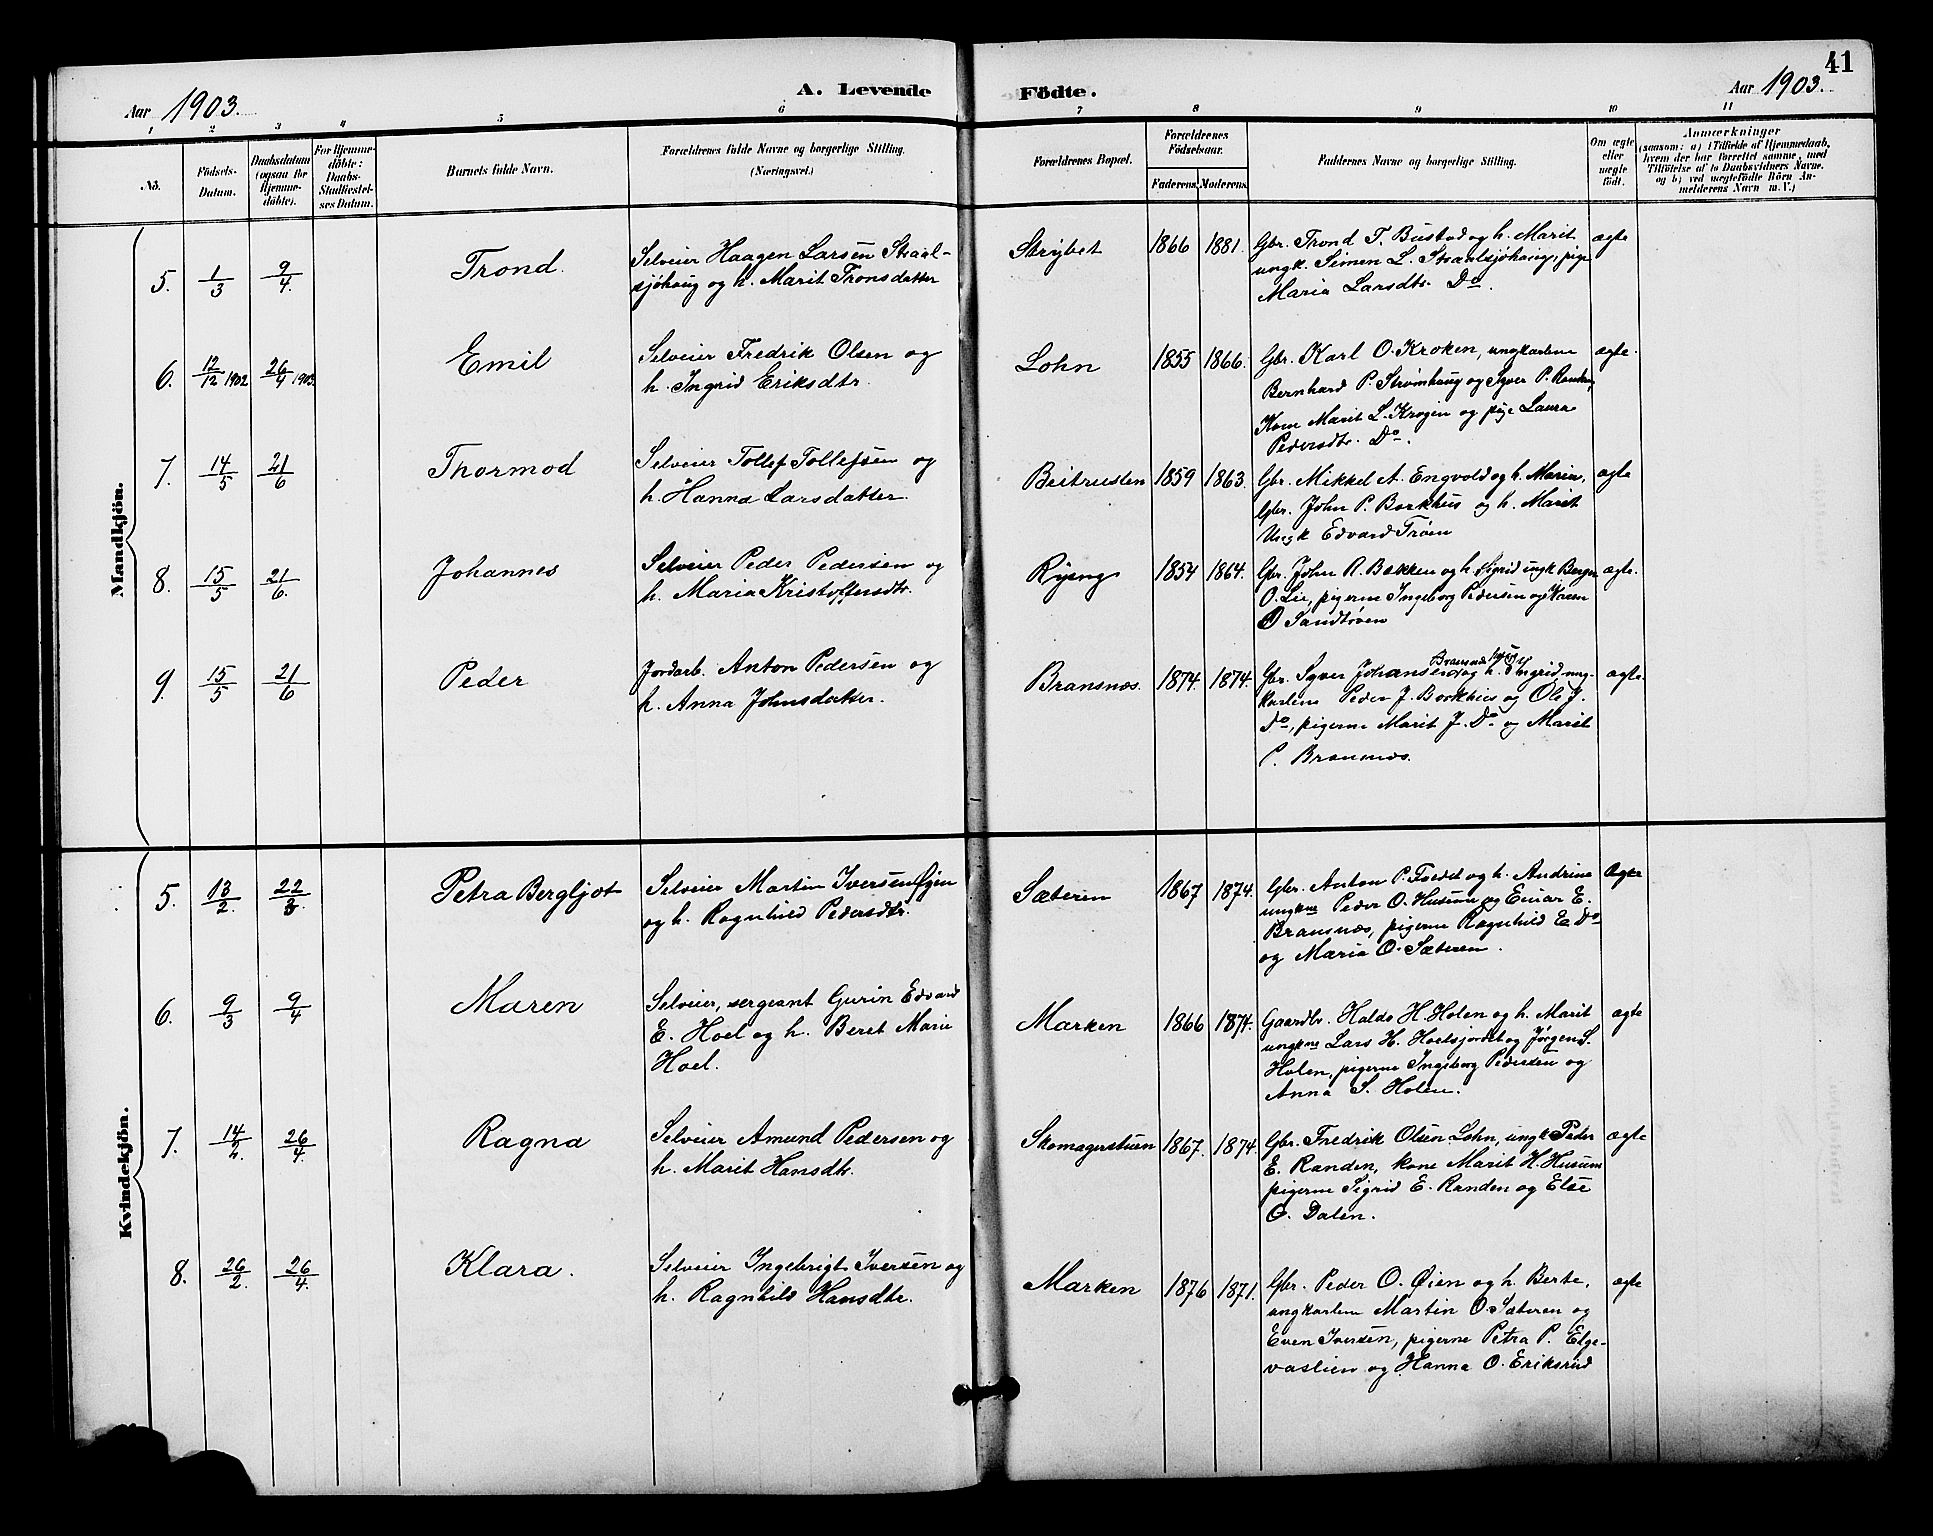 41
Aar 1903.
A. Levende Födte.
Aar 1903.
1 2 3 4 5 6 7 8 9 10 11
No.
Födsels-
Datum.
Daabsdatum
(ogsaa for
Hjemme-
döbte).
For Hjemme-
döbte:
Daabs-
Stadfæstel-
ses Datum.
Barnets fulde Navn.
Forældrenes fulde Navne og borgerlige Stilling.
(Næringsvei.)
Forældrenes Bopæl.
Forældrenes
Födselsaar.
Faderens. Moderens.
Faddernes Navne og borgerlige Stilling.
Om ægte
eller
uægte
födt.
Anmærkninger
(saasom: a) i Tilfælde af Hjemmedaab,
hvem der har forrettet samme, med
Tilföielse af to Daabsvidners Navne.
og b) ved uægtefödte Börn An-
melderens Navn m. V.)
Mandkjön.
5. 1/3 9/4. Trond.
Selveier Haagen Larsen Straal-
sjøhaug og h. Marit Tronsdatter
Strybet 1866 1881.
Gbr. Trond T. Bustad og h. Marit,
ungk. Simen L. Straalsjøhaug, pige
Maria Larsdtr. Do.
ægte
6. 12/12 1902 26/4 1903. Emil
Selveier Fredrik Olsen og
h. Ingrid Eriksdtr.
Lohn 1855 1866.
Gbr. Karl O. Kroken, ungkarlene
Bernhard P. Strømhaug og Syver P. Randen,
Kone Marit L. Krogen og pige Laura
Pedersdtr. Do.
ægte.
7. 14/5 21/6 Thormod
Selveier Tollef Tollefsen og
h. Hanna Larsdatter.
Beitrusten 1859 1863.
Gbr. Mikkel A. Engvold og h. Maria,
Gbr. John P. Borkhus og h. Marit
Ungk Edvard Trøen
ægte
8. 15/5 21/6. Johannes
Selveier Peder Pedersen og
h. Maria Kristoffersdtr.
Ryeng 1854 1864.
Gbr. John R. Bakken og h. Sigrid ungk Berger
O. Lie, pigerne Ingeborg Pedersen og Karen
O Sandtrøen
ægte.
9. 15/5 21/6 Peder
Jordarb. Anton Pedersen og
h. Anna Johnsdatter.
Bransnæs. 1874. 1874.
Gbr. Syver Johansen og h. Ingrid ung-
karlene Peder J. Borkhus og Ole J.
Do, pigerne Marit J. Do. og Marit
P. Bransnæs.
ægte.
Kvindekjön.
5. 13/2. 22/3 Petra Bergljot
Selveier Martin Iversen Øyen
og h. Ragnhild Pedersdtr.
Sæteren 1867 1874.
Gbr. Anton P. Foedet og h. Andrine
ungkne Peder O. Husum og Einar E.
Bransnæs, pigerne Ragnhild E Do
og Maria O. Sæteren.
Ægte
6. 9/3 9/4 Maren
Selveier, sergeant Gurin Edvard
E. Hoel og h. Beret Marie
Hoel.
Marken 1866 1874.
Gaardbr. Haldo H. Holen og h. Marit
ungkne Lars H. Hoelsjordet og Jørgen S.
Holen, pigerne Ingeborg Pedersen og
Anna S. Holen.
ægte
7. 14/2. 26/4. Ragna
Selveier Amund Pedersen og
h. Marit Hansdtr.
Skomagerstuen 1867. 1874.
Gbr. Fredrik Olsen Lohn, ungk Peder
E. Randen, kone Marit H. Husum
pigerne Sigrid E. Randen og Else
O. Dalen.
ægte
8. 26/2. 26/4. Klara.
Selveier Ingebrigt Iversen og
h. Ragnhild Hansdtr.
Marken 1876 1871.
Gbr. Peder O. Øien og h. Berte,
ungkarlene Martin O. Sæteren og
Even Iversen, pigerne Petra P. Elge-
vaslien og Hanna O. Eriksrud
ægte